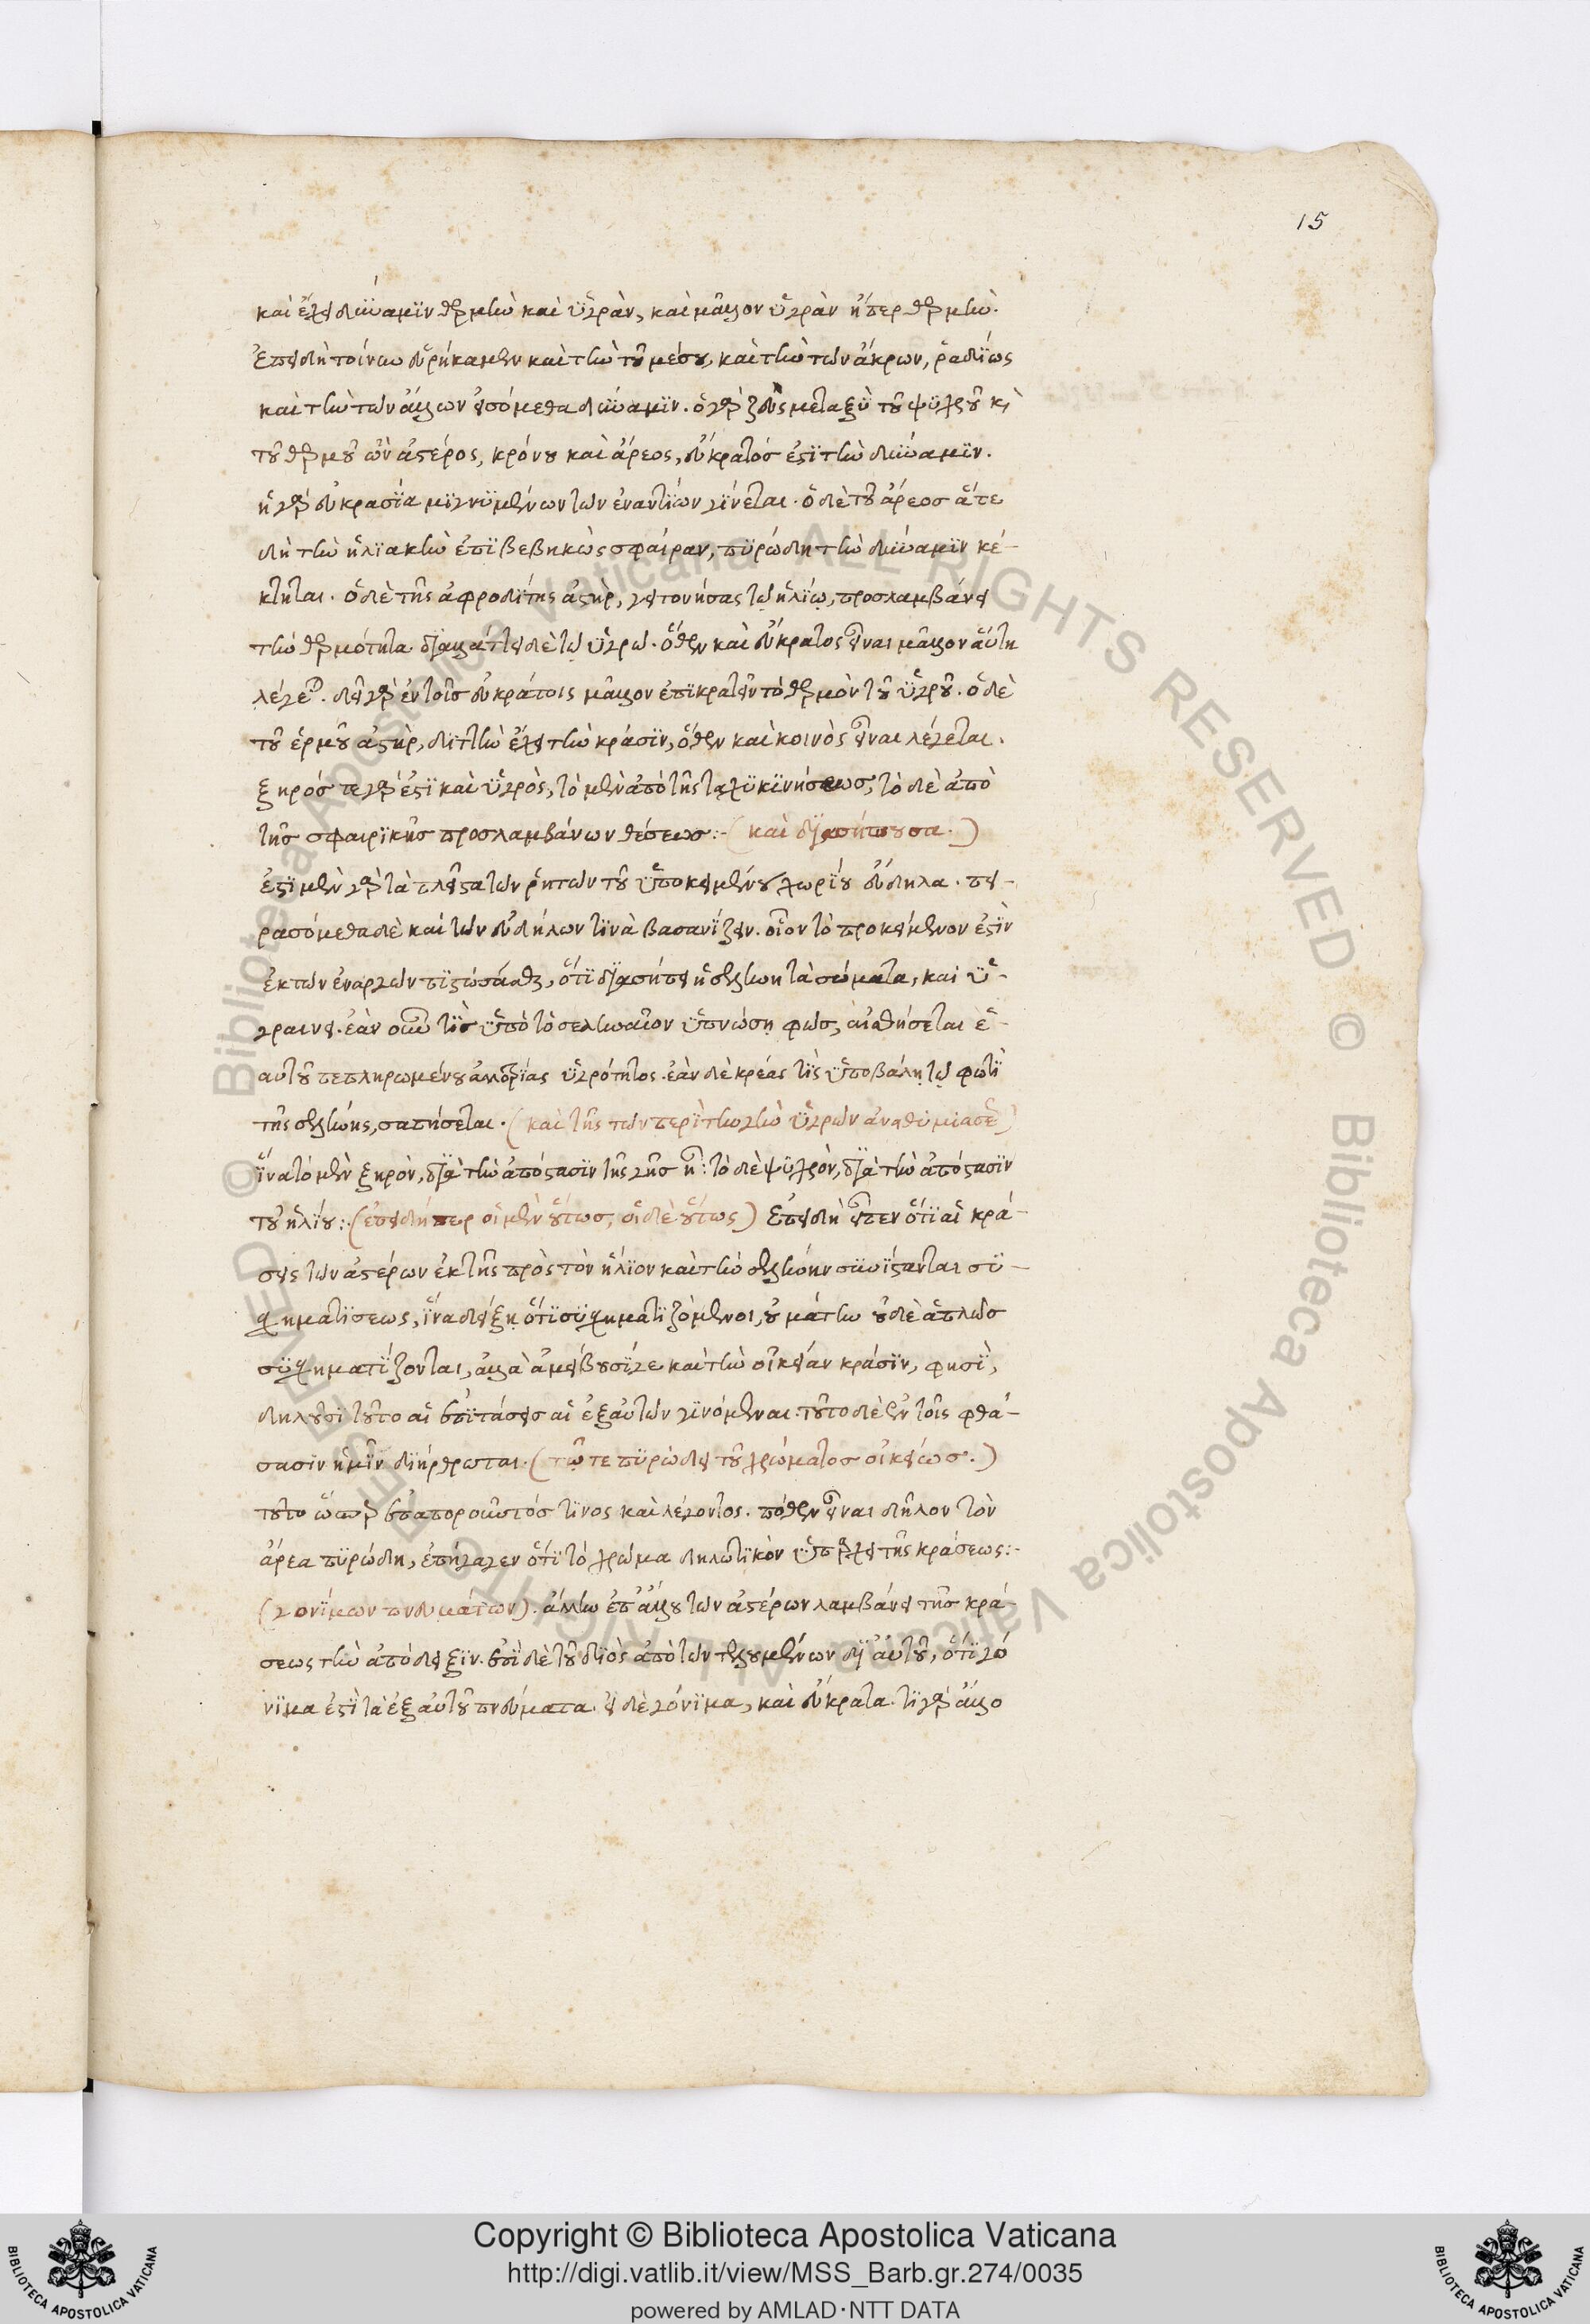 15
καὶ ἔχει δύναμϊν θερμὴν καὶ ϋ̔γρὰν, καὶ μᾶλλον ϋ̔γρὰν ἤπερ θερμὴν.
ἐπειδὴ τοίνυν εὑρήκαμεν καὶ τὴν τοῦ μέσου, καὶ τὴν τῶν ἄκρων, ῥαδΐως
καὶ τὴν τῶν ἄλλων εἰσόμεθα δύναμϊν. ὁ γὰρ ζεὺς μεταξὺ τοῦ ψϋχροῦ κὶ
τοῦ θερμοῦ ὢν ἀστέρος, κρόνου καὶ ἄρεος, εὔκρατόσ ἐστϊ τὴν δύναμϊν.
ἡ γὰρ εὐκρασΐα μϊγνϋμένων τῶν ἐναντΐων γΐνεται. ὁ δὲ τοῦ ἄρεοσ ἅτε
δὴ τὴν ἡλϊακὴν ἐπϊβεβηκὼς σφαίραν, πϋρώδη τὴν δύναμϊν κέ-
κτηται. ὁ δὲ τῆς ἀφροδΐτης ἀστὴρ, γειτονήσας τῷ ἡλΐῳ, προσλαμβάνει
τὴν θερμότητα. διαλλάττει δὲ τῷ ϋ̔γρῷ. ὅθεν καὶ εὔκρατος εἶναι μᾶλλον αὕτη
λέγεται. δεῖ γὰρ ἐν τοῖσ εὐκράτοις μᾶλλον ἐπϊκρατεῖν τὸ θερμὸν τοῦ ϋ̔γροῦ. ὁ δὲ
τοῦ ἑρμοῦ ἀστὴρ, διττὴν ἔχει τὴν κράσϊν, ὅθεν καὶ κοινὸς εἶναι λέγεται.
ξηρόσ τε γάρ ἐστϊ καὶ ϋ̔γρὸς, τὸ μὲν ἀπὸ τῆς ταχϋκϊνήσεωσ, τὸ δὲ ἀπὸ
τῆσ σφαιρϊκῆσ προσλαμβάνων θέσεωσ:- (καὶ διασήπουσα.)
ἐστϊ μὲν γὰρ τὰ πλεῖστα τῶν ῥητῶν τοῦ ϋ̔ποκειμένου χωρΐου εὔδηλα. πει-
ρασόμεθα δὲ καὶ τῶν εὐδήλων τϊνὰ βασανΐζειν. οἷον τὸ προκείμενον ἐστὶν
ἐκ τῶν ἐναργῶν πϊστώσασθαι, ὅτϊ διασήπει ἡ σελήνη τὰ σώματα, καὶ ϋ̔-
γραινει. ἐὰν οὖν τϊσ ϋ̔πὸ τὸ σεληναῖον ϋ̔πνώσῃ φῶσ, αἰσθήσεται ἑ-
αυτοῦ πεπληρωμένου ἀλλοτρΐας ϋ̔γρότητος. ἐὰν δὲ κρέας τϊς ϋ̔ποβάλῃ τῷ φωτῒ
τῆς σελήνης, σαπήσεται. (καὶ τῆς τῶν περὶ τὴν γὴν ϋ̔γρῶν ἀναθϋμιάσε)
ἵ̈να τὸ μὲν ξηρὸν, διὰ τὴν ἀπόστασϊν τῆς γῆσ ᾖ: τὸ δὲ ψϋχρὸν, διὰ τὴν ἀπόστασϊν
τοῦ ἡλΐου:. (ἐπειδήπερ οἱ μὲν οὕτωσ, οἱ δὲ οὕτως) Ἐπειδὴ εἶπεν ὅτϊ αἱ κρά-
σεις τῶν ἀστέρων ἐκ τῆς πρὸς τὸν ἥλϊον καὶ τὴν σελήνην σϋνΐστανται σϋ-
σχηματϊσεως, ἵ̈να δείξῃ ὅτϊ σϋσχηματϊζόμενοι, οὐ μάτην οὐδὲ ἁπλῶσ
σϋσχηματΐζονται, ἀλλὰ ἀμείβουσϊ γε καὶ τὴν οἰκείαν κράσϊν, φησῒ,
δηλοῦσϊ τοῦτο αἱ ἐπϊτάσεισ αἱ ἐξ αὐτῶν γϊνόμεναι. τοῦτο δὲ ἐν τοῖς φθά-
σασιν ἡμῖν διήρθρωται. (τῷ τε πϋρώδει τοῦ χρώματοσ οἰκείωσ.)
τοῦτο ὥσπερ ἐπαποροῦντόσ τϊνος καὶ λέγοντος. πόθεν εἶναι δῆλον τὸν
ἄρεα πϋρώδη, ἐπήγαγεν ὅτϊ τὸ χρῶμα δηλωτϊκὸν ϋ̔πάρχει τῆς κράσεως:-
(γονΐμων πνευμάτων). ἄλλην ἐπ' ἄλλου τῶν ἀστέρων λαμβάνει τῆσ κρά-
σεως τὴν ἀπόδειξϊν. ἐπῒ δὲ τοῦ διὸς ἀπὸ τῶν τελουμένων δι' αὐτοῦ, ὅτϊ γό
νϊμα ἐστϊ τὰ ἐξ αὐτοῦ πνεύματα. εἰ δὲ γόνϊμα, καὶ εὔκρατα. τϊ γὰρ ἄλλο
Copyright © Biblioteca Apostolica Vaticana
http://digi.vatlib.it/view/MSS_Barb.gr.274/0035
powered by AMLAD·NTT DATA